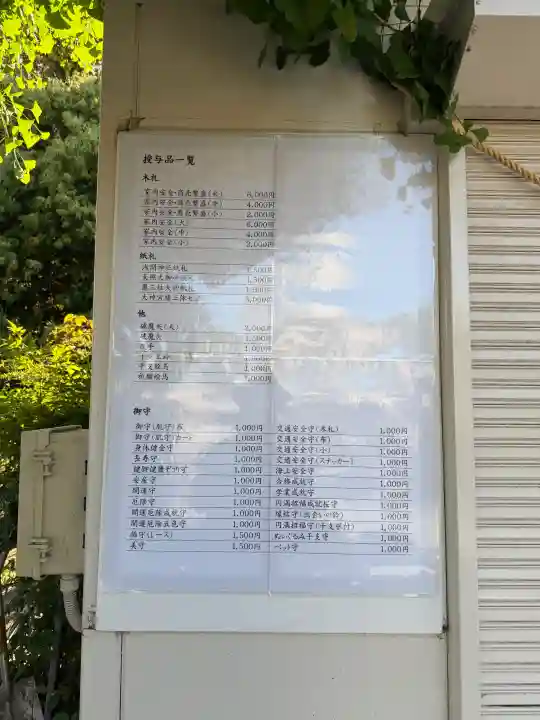 授与品一覧
木札
家内安全・商売繁盛(大) 6,000円
家内安全・商売繁盛(中) 4,000円
家内安全・商売繁盛(小) 2,000円
家内安全(大) 6,000円
家内安全(中) 4,000円
家内安全(小) 2,000円
紙札
浅間神社紙札 1,500円
1,500円
1,000円
3,000円
他
破魔矢(大) 3,000円
破魔矢 1,500円
熊手 1,000円
干支絵馬 1,000円
祈願絵馬 1,000円
御守
御守(肌守)布 1,000円
御守(肌守)カード 1,000円
身体健全守 1,000円
長寿守 1,000円
1,000円
安産守 1,000円
開運守 1,000円
厄除守 1,000円
開運厄除成就守 1,000円
開運厄除五色守 1,000円
福守(レース) 1,500円
美守 1,500円
交通安全守(木札) 1,000円
交通安全守(布) 1,000円
交通安全守(小) 1,000円
交通安全守(ステッカー) 1,000円
海上安全守 1,000円
合格成就守 1,000円
学業成就守 1,000円
円満招福成就守 1,000円
縁結守(出会いの鈴) 1,000円
円満招福守(干支根付) 1,000円
ぬいぐるみ干支守 1,000円
ペット守 1,000円